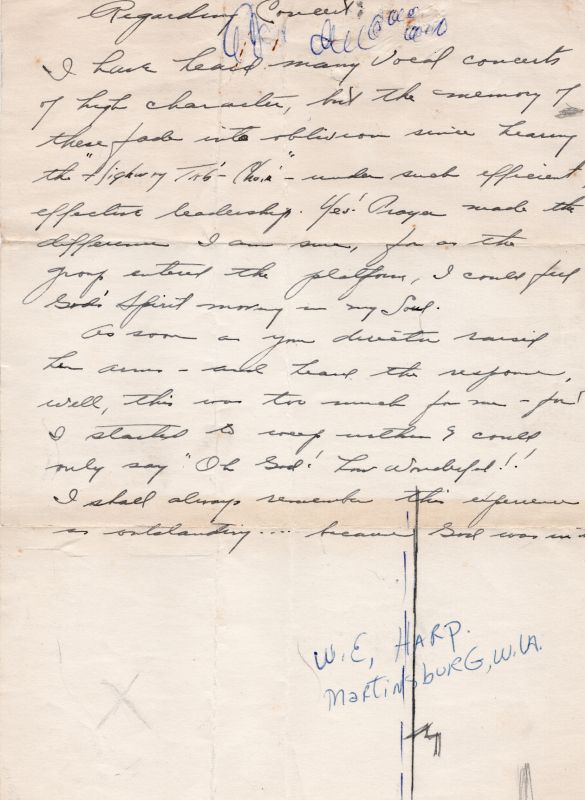 Regarding Concert:
I have heard many vocal concerts
of high character, but the memory of
these fade into oblivion since hearing
the "Highway Tab'- Choir" - under such efficient
effective leadership. Yes! Prayer made the
difference I am sure, for as the
group entered the platform, I could feel
God's Spirit moving in my Soul.
As soon as your director raised
her arms - and heard the response,
well, this was too much for me - for!
I started to weep within & could
only say "Oh God! how wonderful!!
I shall always remember this experience
as outstanding.... because God was in
W.E, HARP.
MARTINSBURG, W.VA.